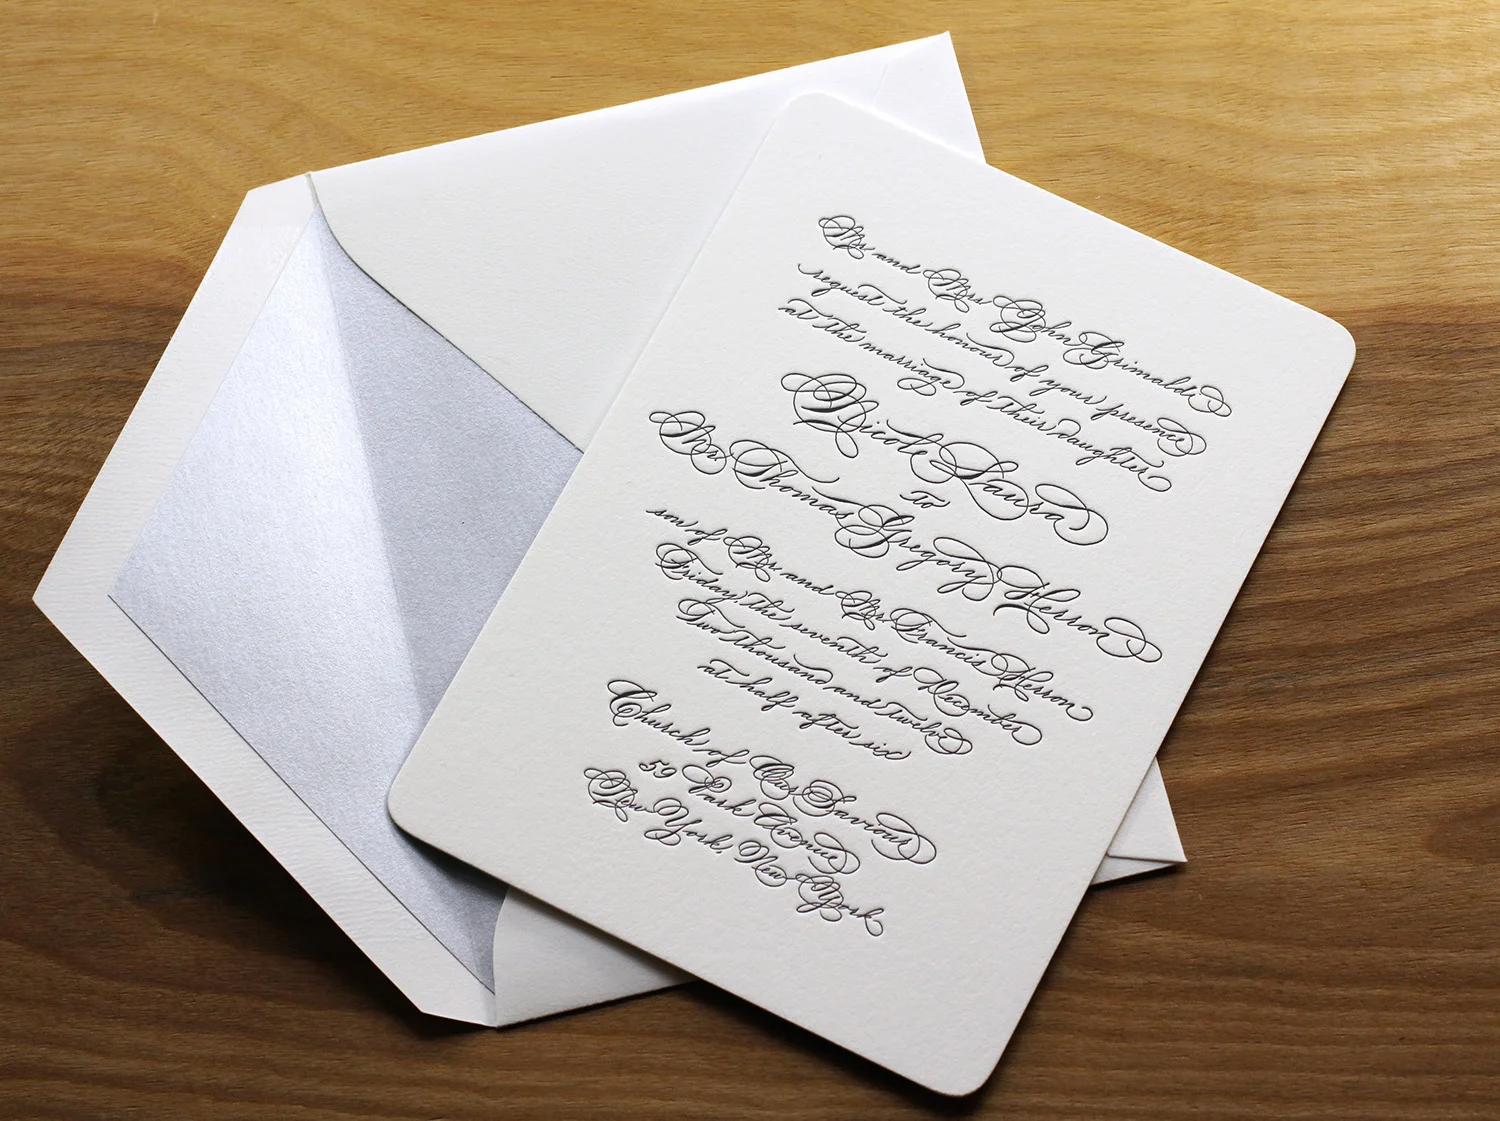 Mr. and Mrs. John Grimaldi
request the honour of your presence
at the marriage of their daughter
Nicole Laura
to
Mr. Thomas Gregory Herron
son of Mr. and Mrs. Francis Herron
Friday, the seventh of December
Two thousand and twelve
at half after six
Church of Our Saviour
59 Park Avenue
New York, New York